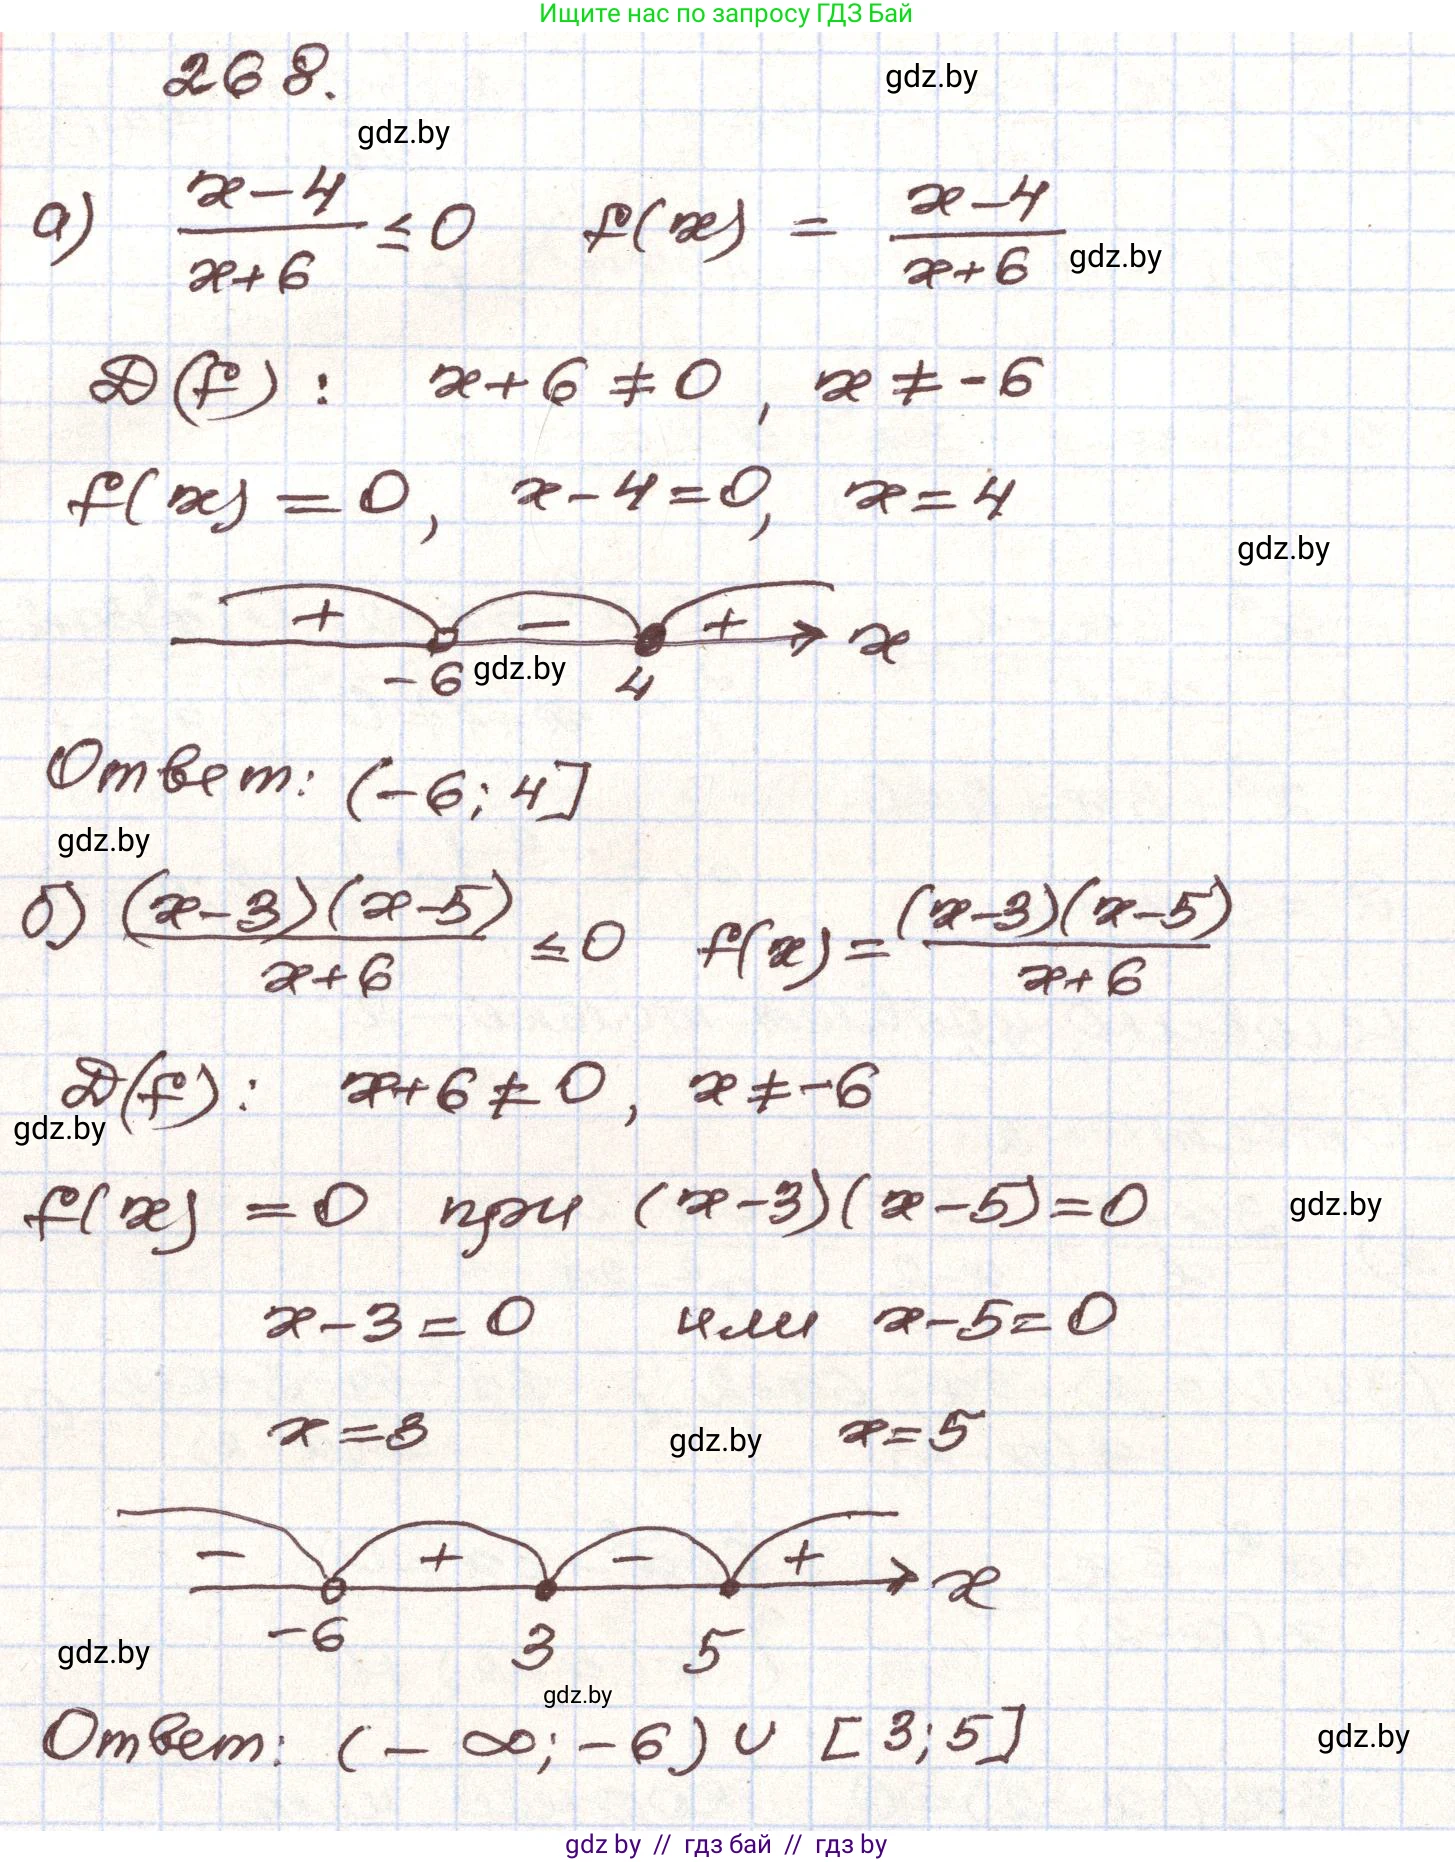 Ищите нас по запросу ГДЗ Бай
268.
gdz.by
gdz.by
а) (x-4)/(x+6) ≤ 0 f(x) = (x-4)/(x+6)
gdz.by
D(f): x+6 ≠ 0, x ≠ -6
f(x) = 0, x-4=0, x=4
gdz.by
+ - + x
-6 4
gdz.by
Ответ: (-6; 4]
gdz.by
б) (x-3)(x-5)/(x+6) ≤ 0 f(x) = (x-3)(x-5)/(x+6)
D(f): x+6 ≠ 0, x ≠ -6
gdz.by
f(x) = 0 при (x-3)(x-5)=0
gdz.by
x-3=0 или x-5=0
x=3 x=5
gdz.by
- + - + x
-6 3 5
gdz.by
gdz.by
Ответ: (-∞; -6) ∪ [3; 5]
gdz.by
gdz by // гдз бай // гдз by